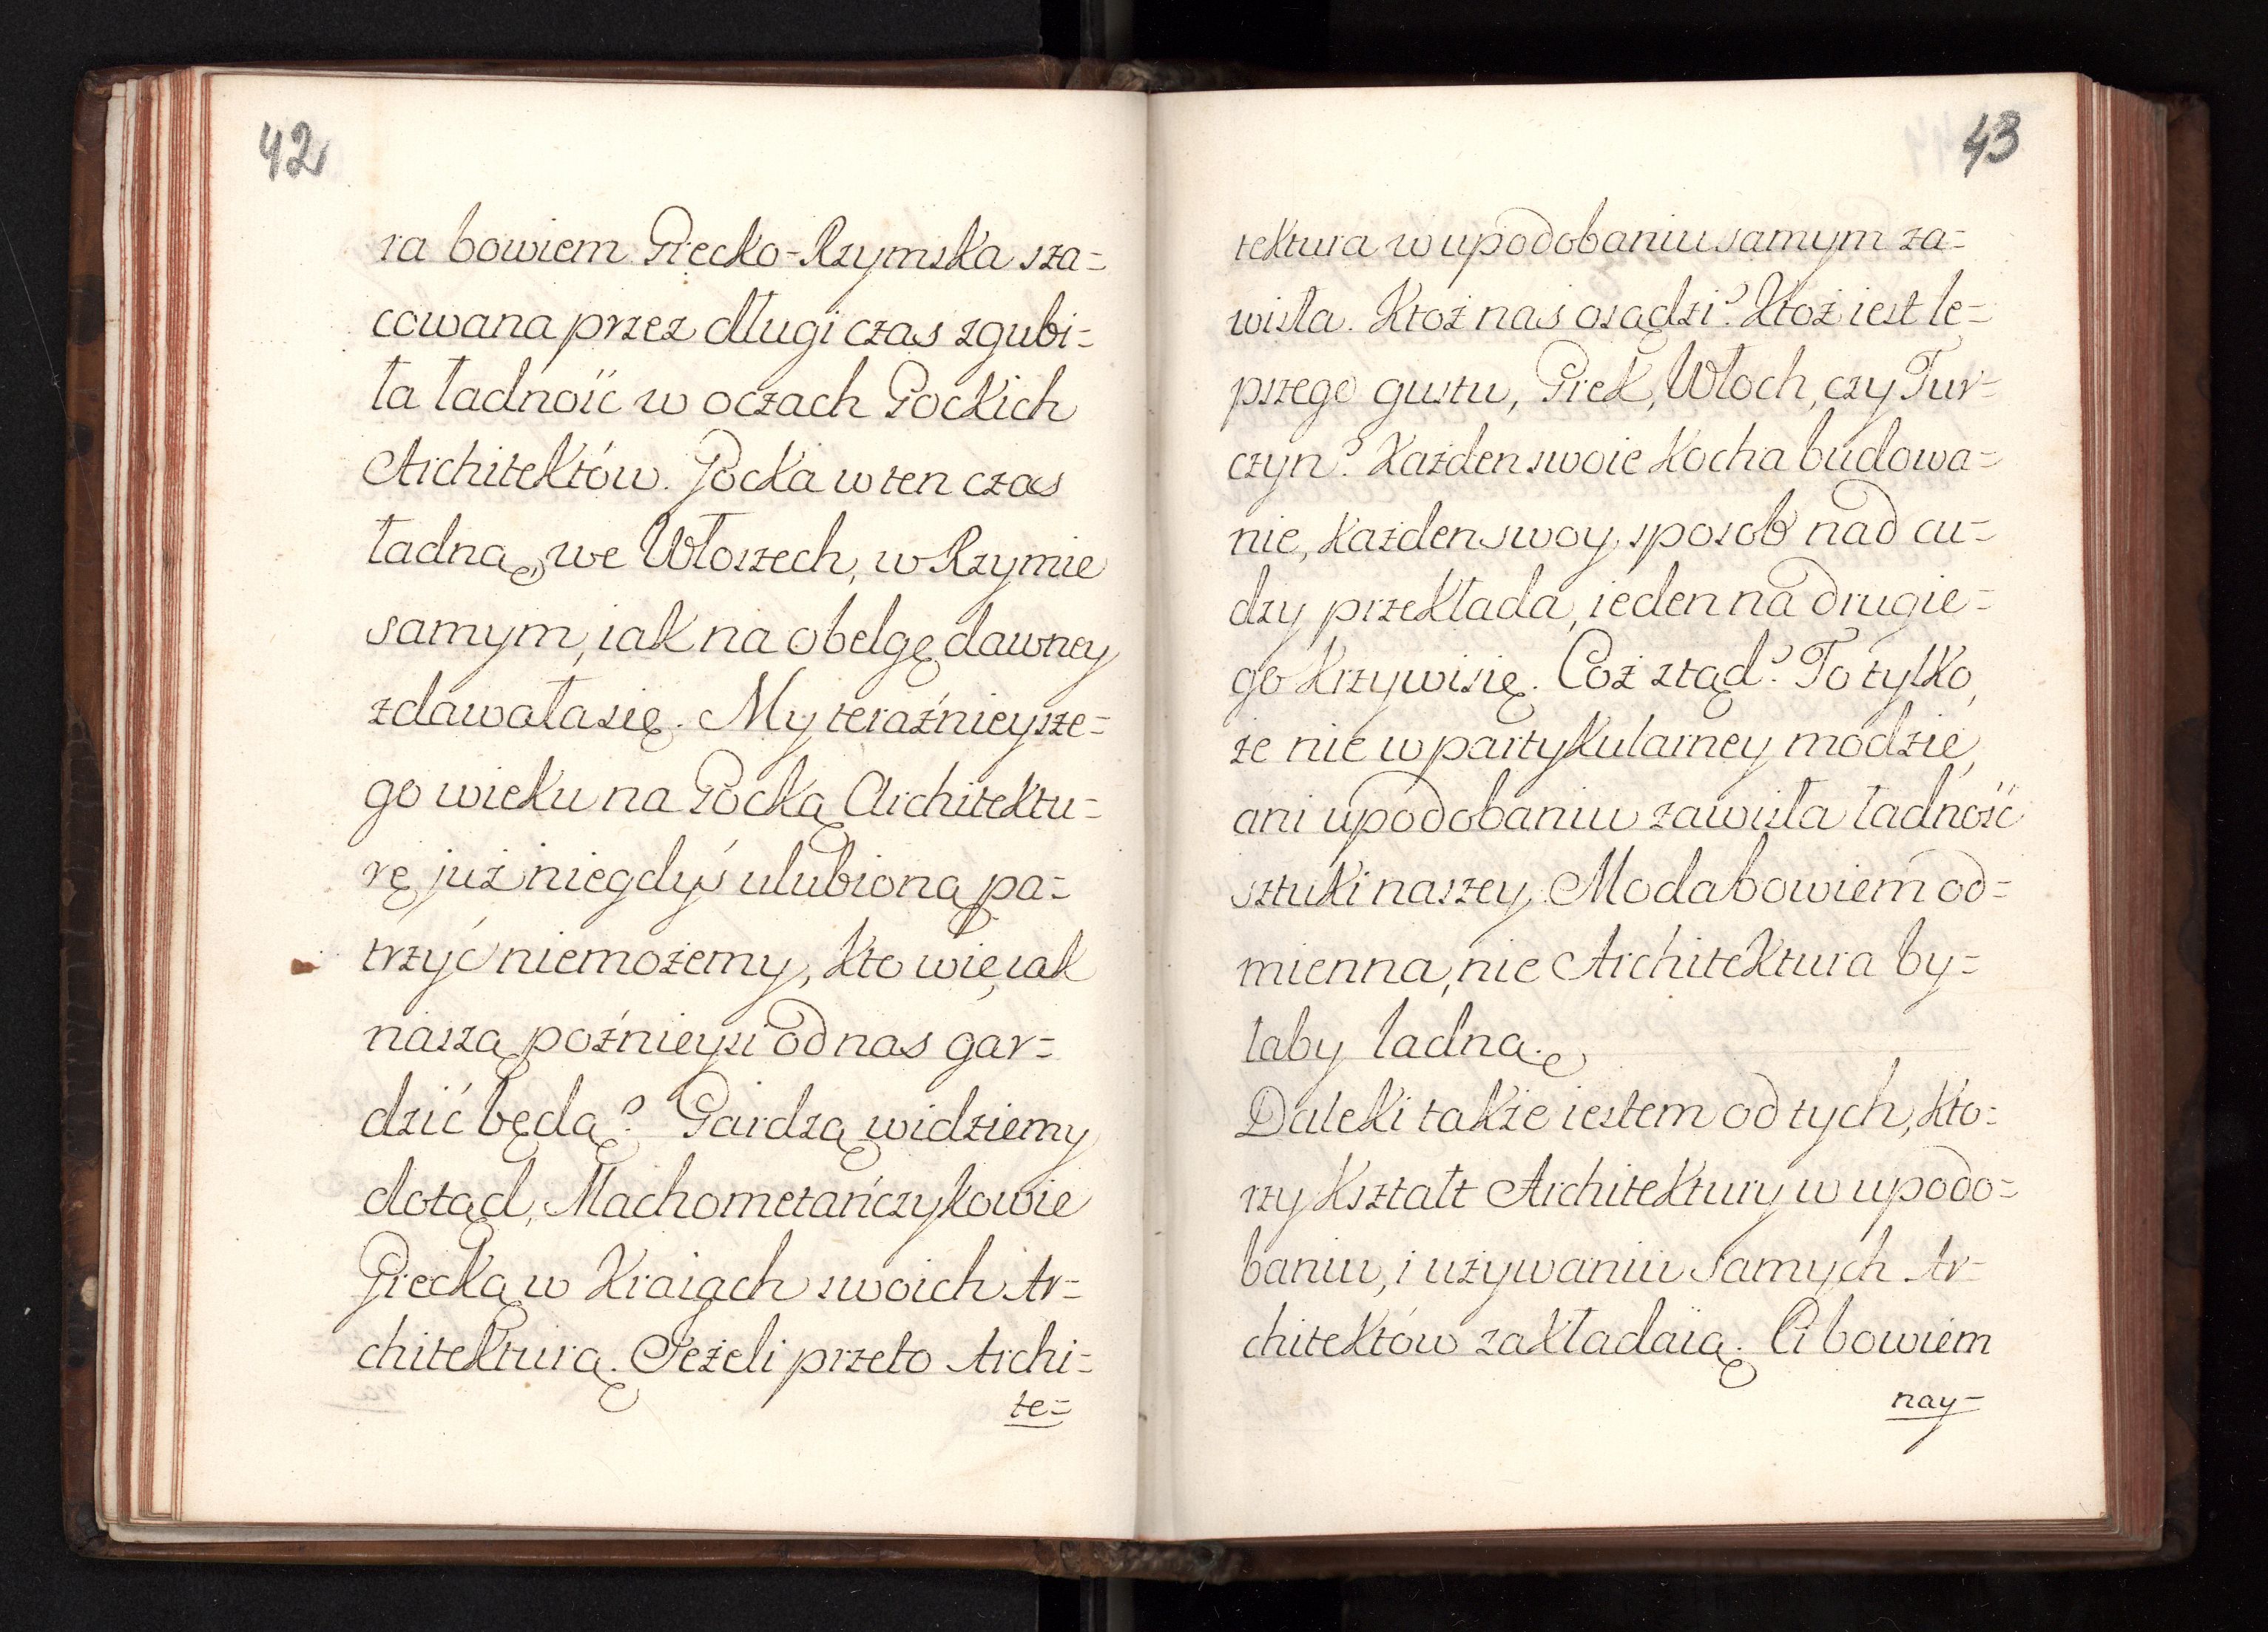 42
ra bowiem Grecko-Rzymska sza=
cowana przez długi czas zgubi=
ła ładność w oczach Gockich
Architektów. Gocka w ten czas
ładną, we Włoszech, w Rzymie
samym, iak na obelgę dawney
zdawała się. My teraźnieysze=
go wieku na Gocką Architektu=
rę już niegdyś ulubioną pa=
trzyć niemożemy, kto wie, iak
naszą poźnieysi od nas gar=
dzić będą? Gardzą widziemy
dotąd, Machometańczykowie
Grecką w Kraiach swoich Ar=
chitekturą. Jeżeli przeto Archi=
te=
43
tektura w upodobaniu samym za=
wisła. Ktoż nas osądzi? Ktoż iest le=
pszego gustu, Grek, Włoch, czy Tur=
czyn? Każden swoie kocha budowa=
nie, każden swoy sposob nad cu=
dzy przekłada, ieden na drugie=
go krzywi się. Coż ztąd? To tylko,
że nie w partykularney modzie,
ani upodobaniu zawisła ładność
sztuki naszey. Moda bowiem od=
mienna, nie Architektura by=
łaby ładną.
Daleki także iestem od tych, kto=
rzy kształt Architektury w upodo=
baniu, i używaniu samych Ar=
chitektów zakładaią. Ci bowiem
nay=